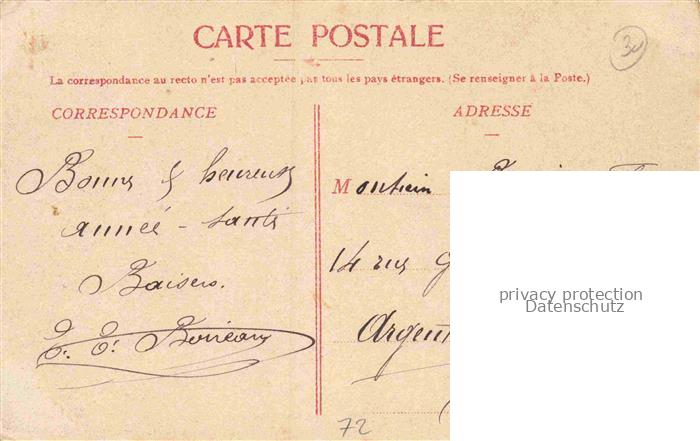 CARTE POSTALE
30
La correspondance au recto n'est pas acceptée par tous les pays étrangers. (Se renseigner à la Poste.)
CORRESPONDANCE
ADRESSE
Bonne & heureuse
année - santé
Baisers.
M
14 rue
Argent
72
privacy protection
Datenschutz